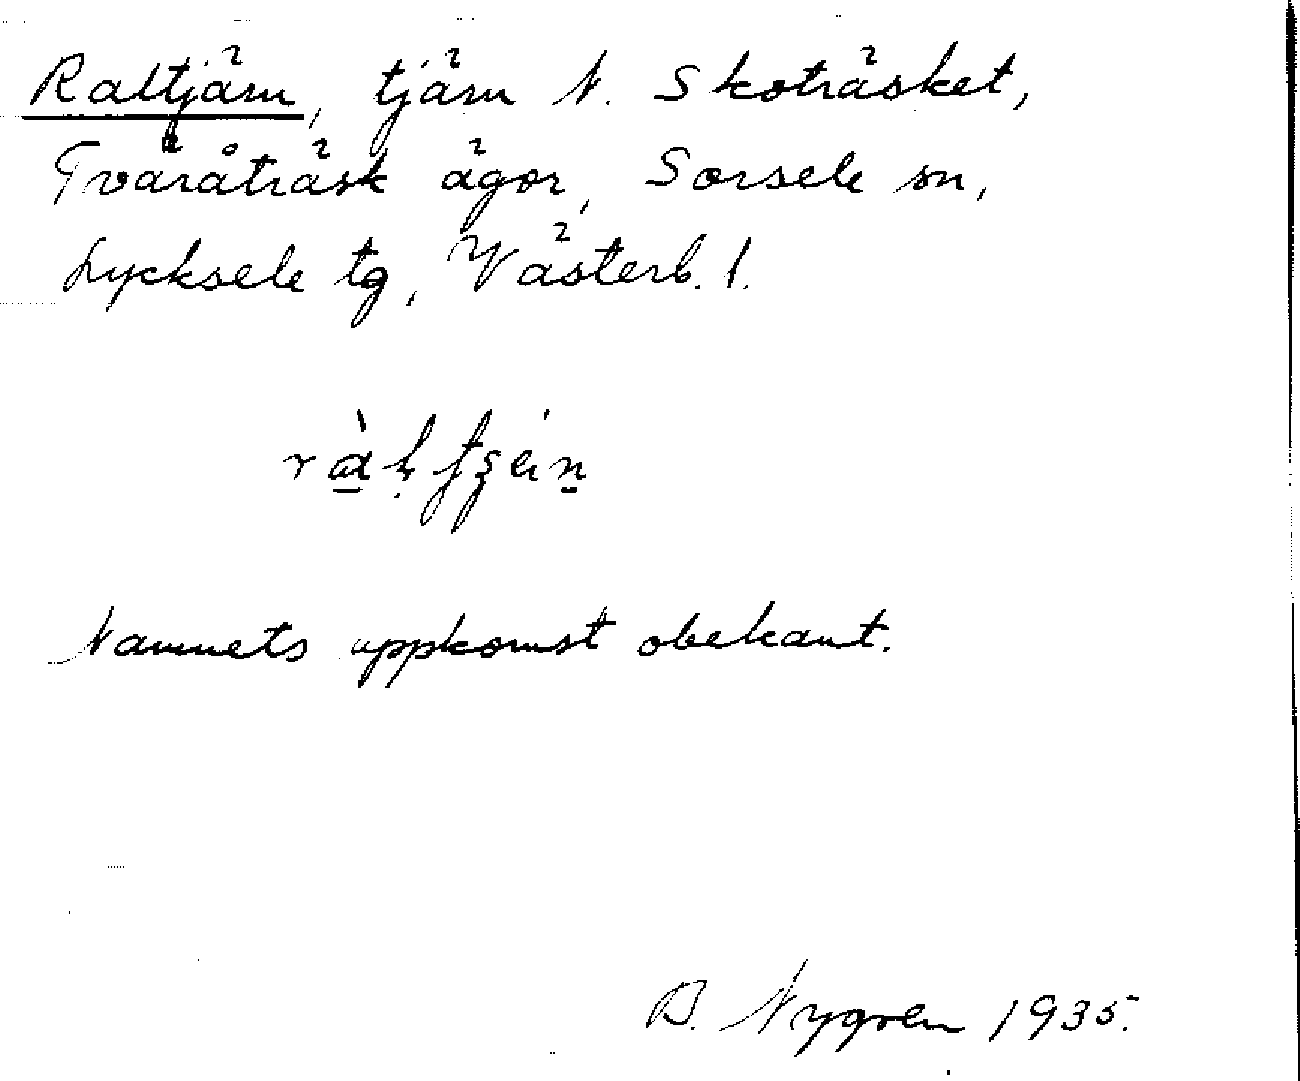 Raltjärn, tjärn N. Skoträsket,
Tväråträsk ägor, Sorsele sn,
Lycksele tg, Västerb. l.
Namnets uppkomst obekant.
B. Nygren 1935.